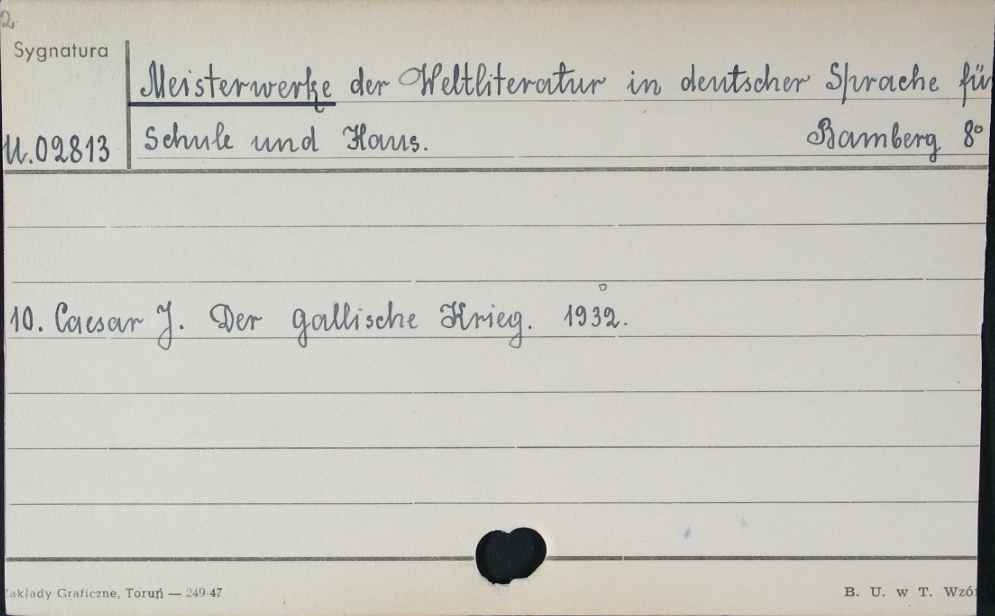 2
Sygnatura
Meisterwerke der Weltliteratur in deutscher Sprache für
U.02813 Schule und Haus. Bamberg 8°
10. Caesar J. Der gallische Krieg. 1932.
Zakłady Graficzne, Toruń — 249-47 B. U. w T. Wzór